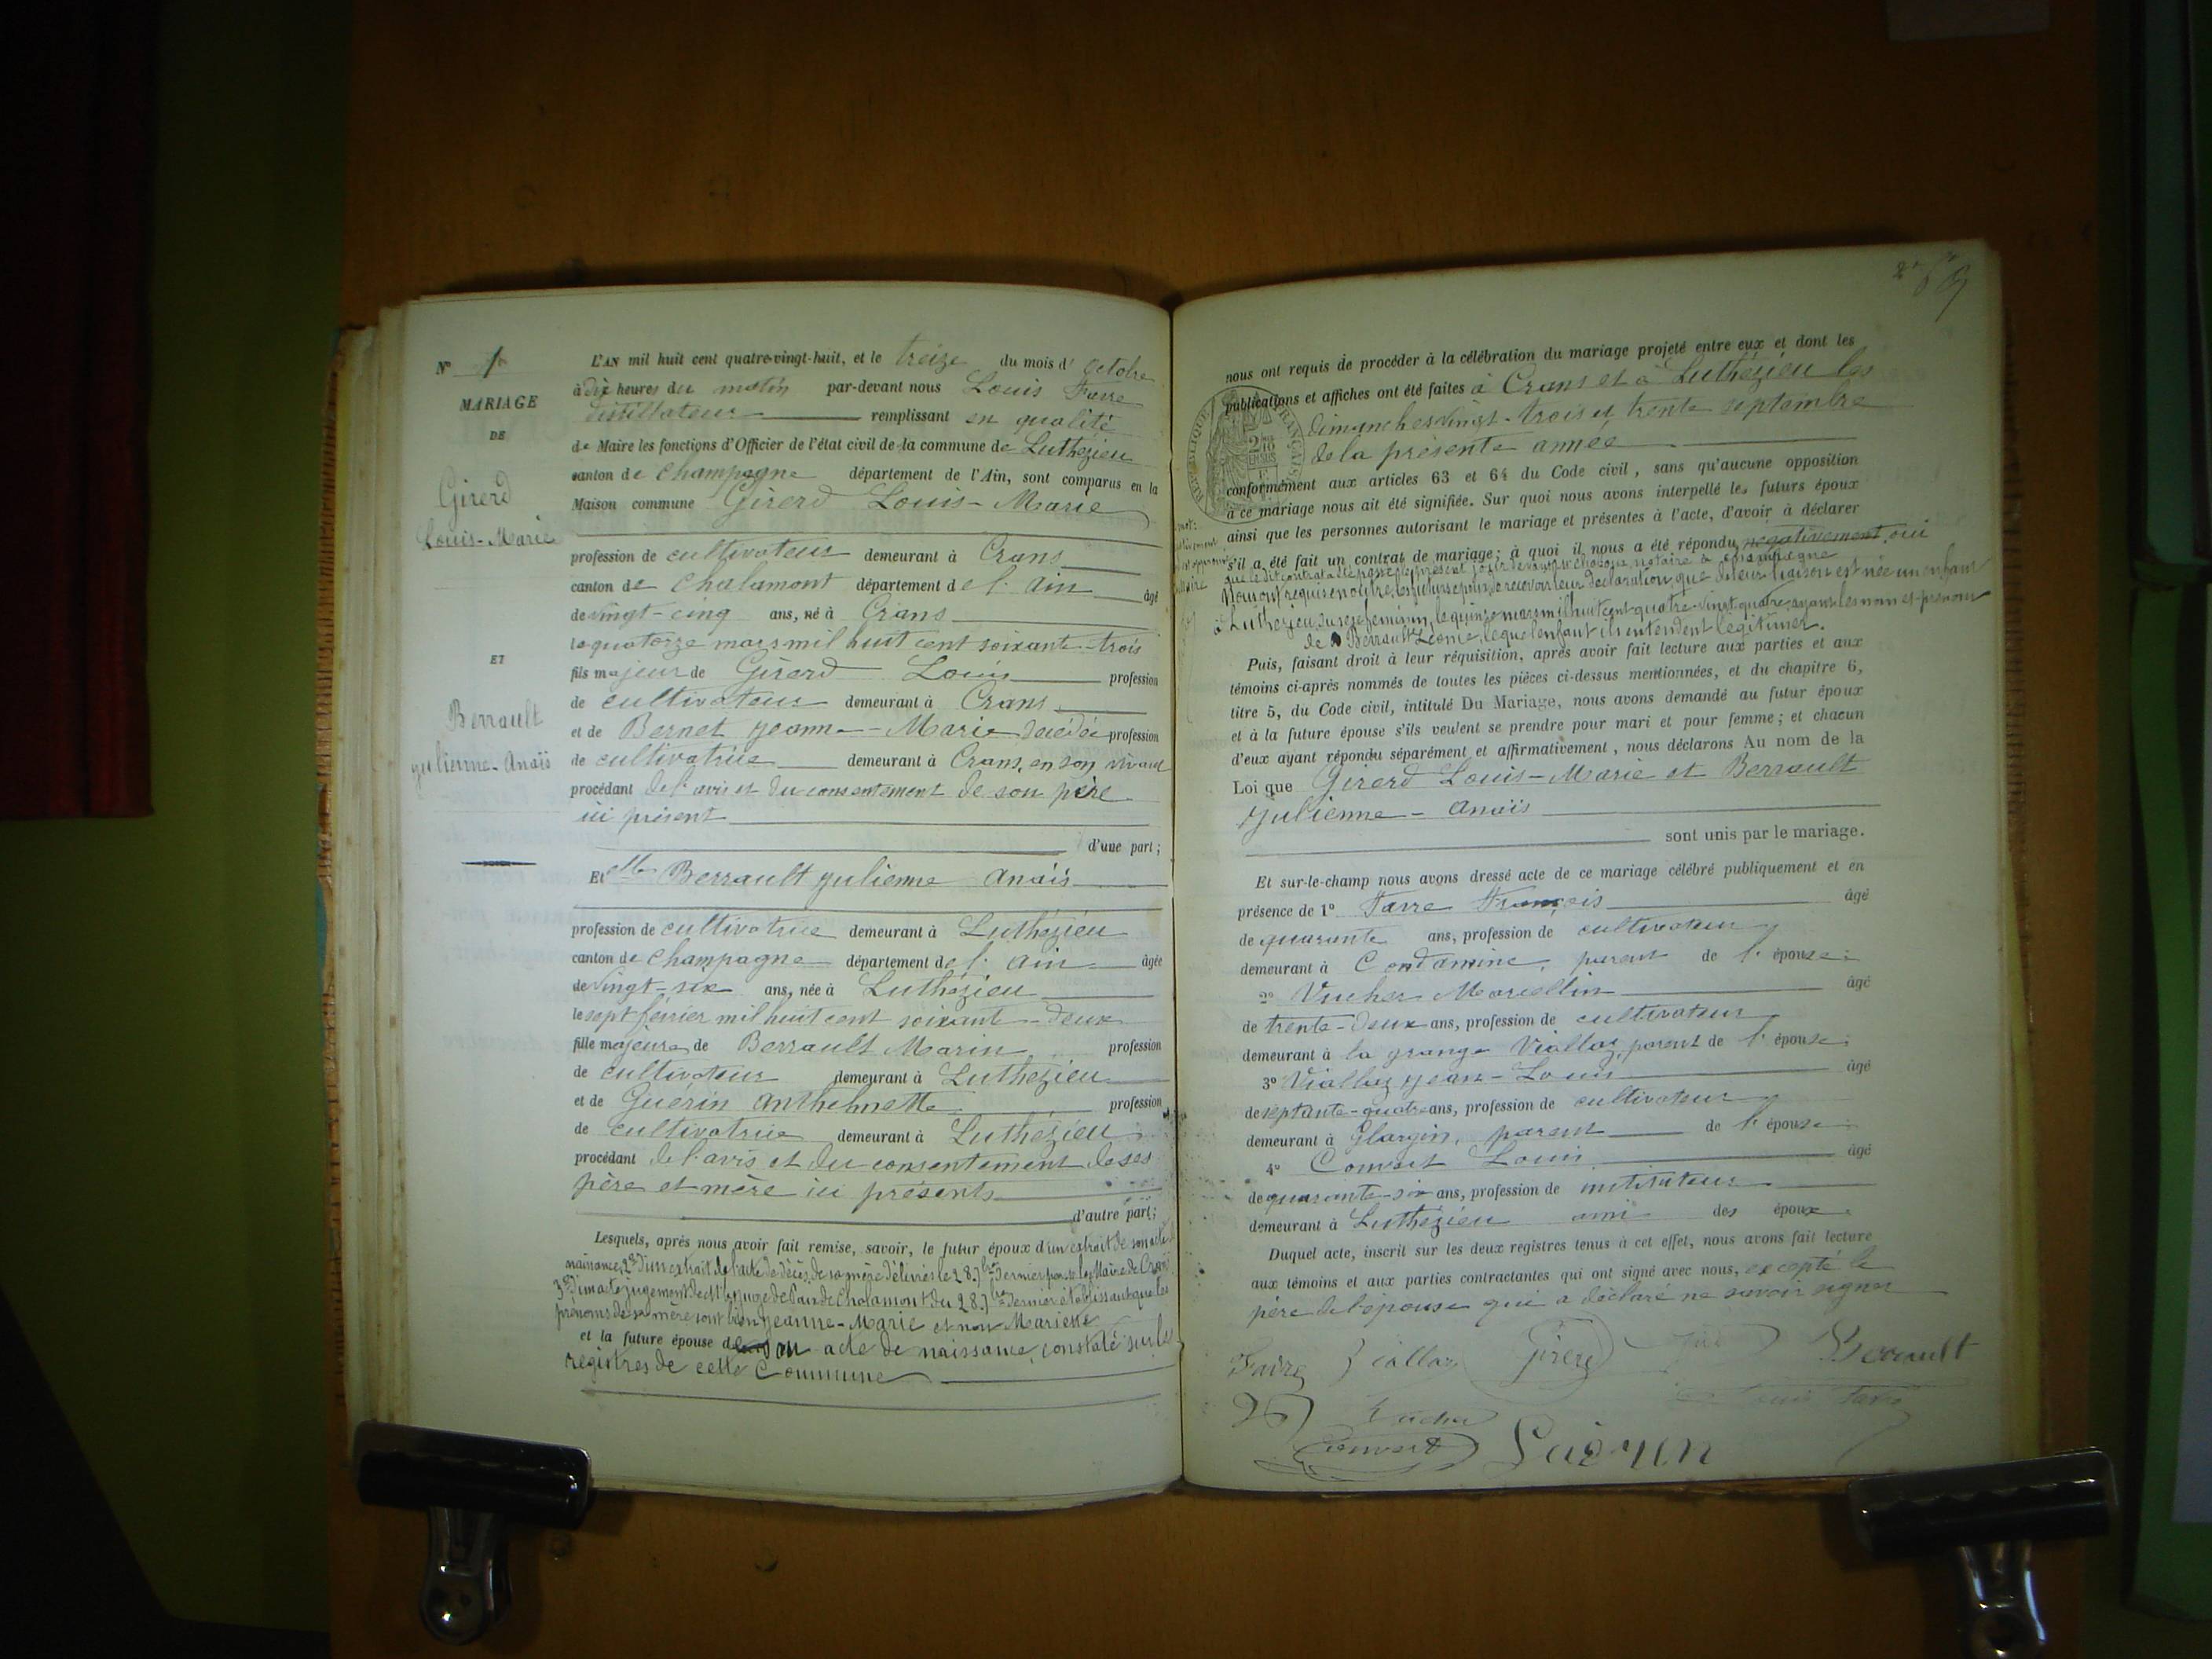 N° 1
MARIAGE
DE
Girerd
Louis-Marie
ET
Berrault
Julienne-Anaïs
L'AN mil huit cent quatre-vingt-huit, et le treize du mois d'octobre
à dix heures du matin par-devant nous Louis Favre
distillateur remplissant en qualité
de Maire les fonctions d'Officier de l'état civil de la commune de Luthézieu
canton de Champagne département de l'Ain, sont comparus en la
Maison commune Girerd Louis-Marie
profession de cultivateur demeurant à Crans
canton de Chalamont département de l'Ain âgé
de vingt-cinq ans, né à Crans
le quatorze mars mil huit cent soixante-trois
fils majeur de Girerd Louis profession
de cultivateur demeurant à Crans
et de Bernet Jeanne-Marie décédée profession
de cultivatrice demeurant à Crans, en son vivant
procédant de l'avis et du consentement de son père
ici présent
d'une part;
Et elle Berrault Julienne Anaïs
profession de cultivatrice demeurant à Luthézieu
canton de Champagne département de l'Ain âgée
de vingt-six ans, née à Luthézieu
le sept février mil huit cent soixante-deux
fille majeure de Berrault Marin profession
de cultivateur demeurant à Luthézieu
et de Guérin Anthelmette profession
de cultivatrice demeurant à Luthézieu
procédant de l'avis et du consentement de ses
père et mère ici présents
d'autre part;
Lesquels, après nous avoir fait remise, savoir, le futur époux d'un extrait de son acte de
naissance, 2° d'un extrait de l'acte de décès de sa mère délivrés le 28 7bre dernier par le Maire de Crans
3° d'un acte jugement de Mr le juge de Paix de Chalamont du 28 7bre dernier établissant que les
prénoms de sa mère sont bien Jeanne-Marie et non Mariette
et la future épouse de son acte de naissance, constaté sur les
registres de cette Commune
nous ont requis de procéder à la célébration du mariage projeté entre eux et dont les
publications et affiches ont été faites à Crans et à Luthézieu les
dimanches vingt-trois et trente septembre
de la présente année
conformément aux articles 63 et 64 du Code civil, sans qu'aucune opposition
à ce mariage nous ait été signifiée. Sur quoi nous avons interpellé les futurs époux
ainsi que les personnes autorisant le mariage et présentes à l'acte, d'avoir à déclarer
s'il a été fait un contrat de mariage; à quoi il nous a été répondu négativement, oui
que le dit contrat a été passé le présent jour devant notaire à Champagne
Nous ont requis en outre, les futurs époux, de recevoir leur déclaration, que de leur liaison est née un enfant
à Luthézieu, du sexe féminin, le quinze mars mil huit cent quatre-vingt quatre, ayant les nom et prénom
de Berrault Léonie, lequel enfant ils entendent légitimer.
Puis, faisant droit à leur réquisition, après avoir fait lecture aux parties et aux
témoins ci-après nommés de toutes les pièces ci-dessus mentionnées, et du chapitre 6,
titre 5, du Code civil, intitulé Du Mariage, nous avons demandé au futur époux
et à la future épouse s'ils veulent se prendre pour mari et pour femme; et chacun
d'eux ayant répondu séparément et affirmativement, nous déclarons Au nom de la
Loi que Girerd Louis-Marie et Berrault
Julienne-Anaïs
sont unis par le mariage.
Et sur-le-champ nous avons dressé acte de ce mariage célébré publiquement et en
présence de 1° Favre François âgé
de quarante ans, profession de cultivateur
demeurant à Condamine, parent de l'épouse;
2° Vucher Marcellin âgé
de trente-deux ans, profession de cultivateur
demeurant à la grange Viallaz, parent de l'épouse;
3° Viallaz Jean-Louis âgé
de septante-quatre ans, profession de cultivateur
demeurant à Glargin, parent de l'épouse
4° Convert Louis âgé
de quarante-six ans, profession de instituteur
demeurant à Luthézieu ami des époux.
Duquel acte, inscrit sur les deux registres tenus à cet effet, nous avons fait lecture
aux témoins et aux parties contractantes qui ont signé avec nous, excepté le
père de l'épouse qui a déclaré ne savoir signer
Favre Viallaz Girerd Berrault
Vucher
Convert